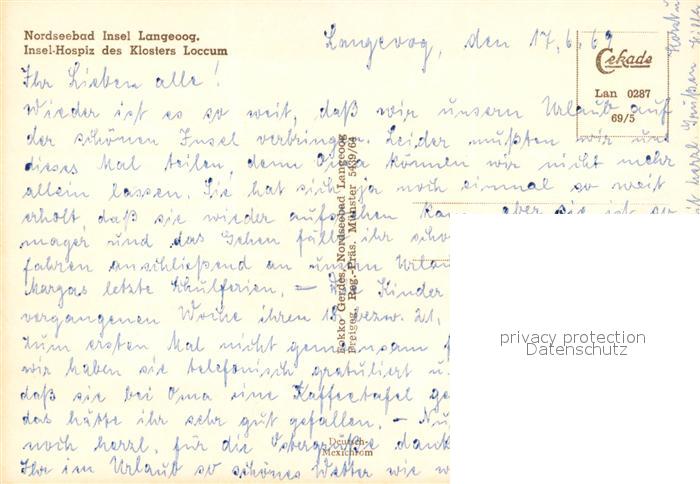 Nordseebad Insel Langeoog.
Insel-Hospiz des Klosters Loccum
Langeoog, den 17.6.69
Cekade
Lan 0287
69/5
Ihr Lieben alle!
Wieder ist es so weit, daß wir unsern Urlaub auf
der schönen Insel verbringen. Leider mußten wir uns
dieses Mal teilen, denn Oma können wir nicht mehr
allein lassen. Sie hat sich ja noch einmal so weit
erholt daß sie wieder aufstehen kann, aber sie ist so
mager und das Gehen fällt ihr schw
fahren anschließend an unsern Urlau
Margas letzte Schulferien. – Die Kinder
vergangenen Woche ihren 18. bezw. 21.
zum ersten Mal nicht gemeinsam
wir haben sie telefonisch gratuliert u.
daß sie bei Oma eine Kaffeetafel ge
das hätte ihr sehr gut gefallen. – Nu
noch herzl. für die Ostergrüße dank
Ihr im Urlaub so schönes Wetter wie w
Fokko Gerdes, Nordseebad Langeoog
Freigeg. Reg.-Präs. Münster 5439/64
Deutsch-
Mexichrom
herzl. Grüßen
privacy protection
Datenschutz